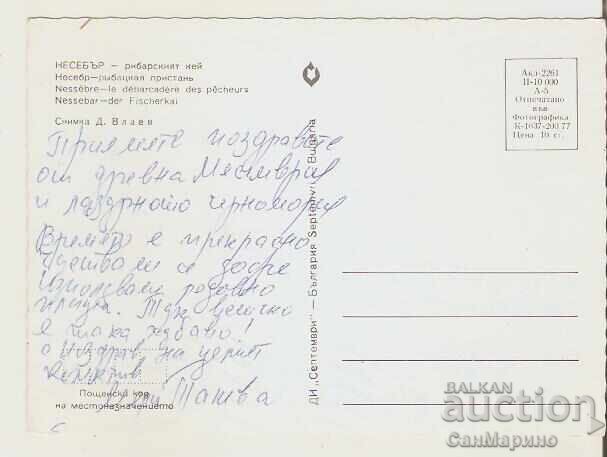 НЕСЕБЪР — рибарският кей
Несебр—рыбацкая пристань
Nessèbre—le débarcadère des pêcheurs
Nessebar—der Fischerkai
Снимка Д. Влаев
Приемете поздравите
от древна Месемврия
и лазурното черноморие
Времето е прекрасно
Чувствам се добре
използвам
плажа. Тук всичко
е така хубаво!
поздрав на целия
колектив
Танева
Пощенски код
на местоназначението
ДИ „Септември" — България Septemvri Bulgaria
Акл-2261
П-10 000
А-5
Отпечатано
във
Фотографика
К-1637-200 77
Цена 10 ст.
BALKAN
auction
СанМарино